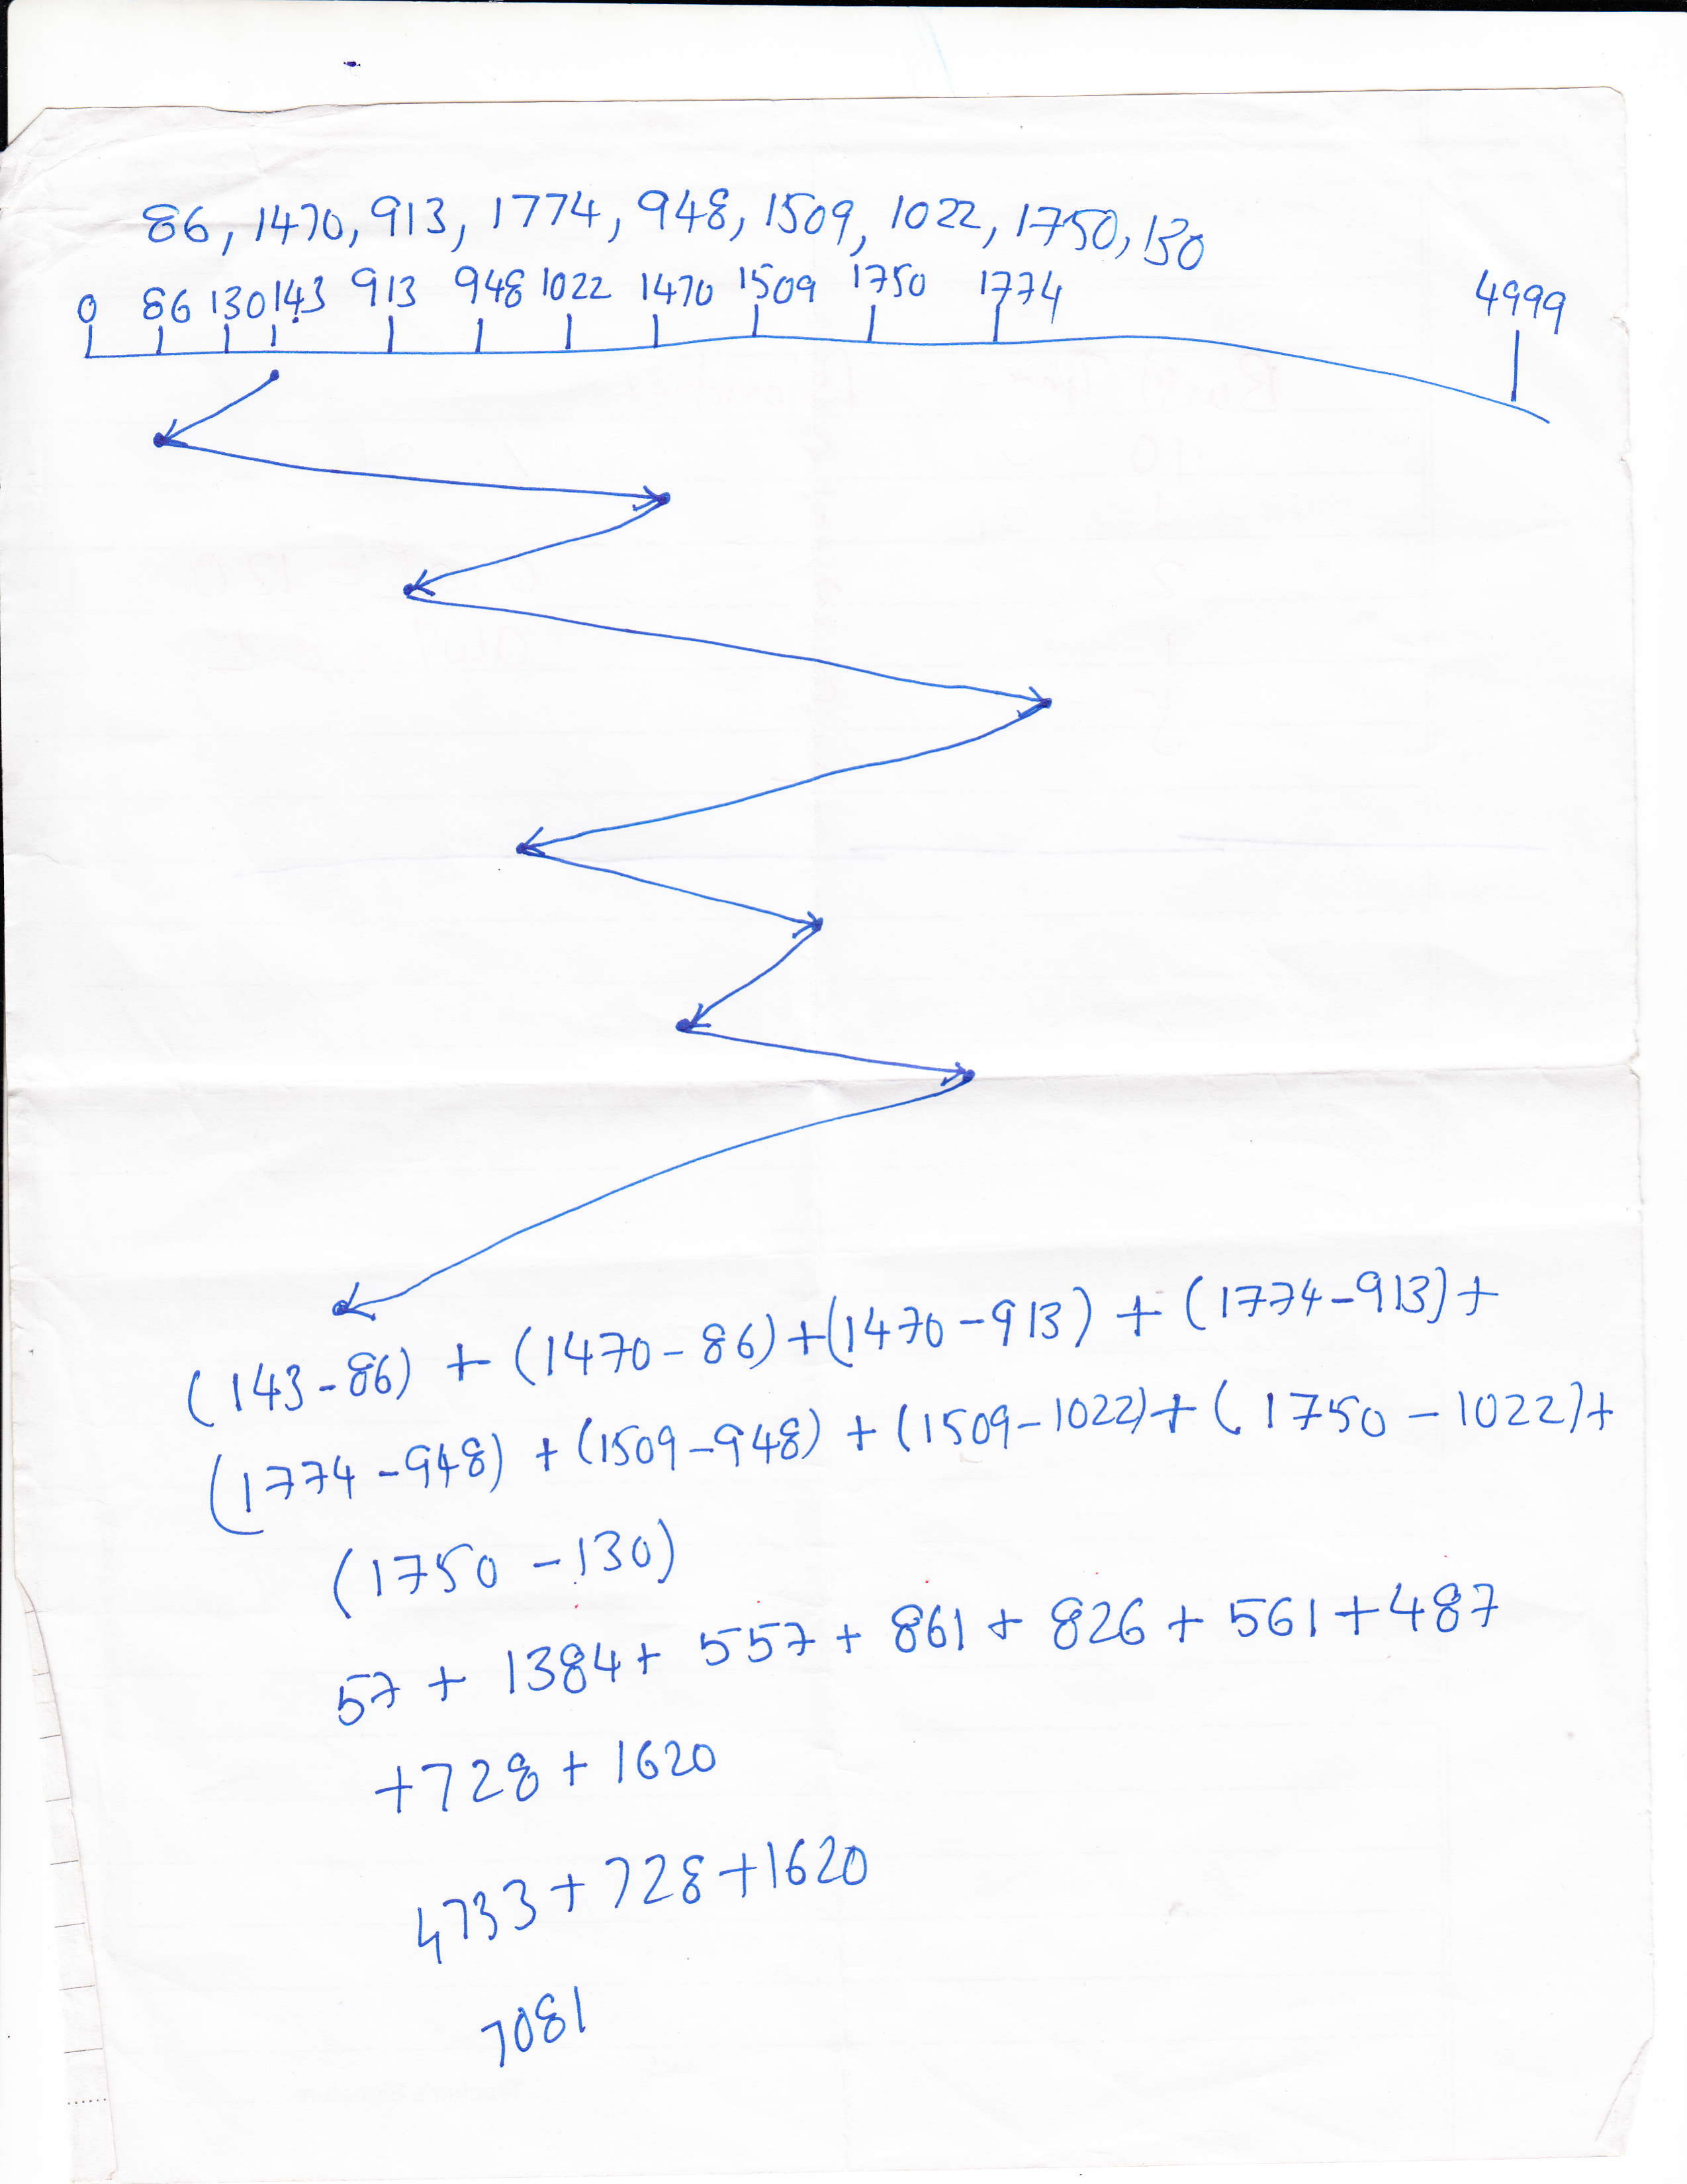 86, 1470, 913, 1774, 948, 1509, 1022, 1750, 130
0 86 130 143 913 948 1022 1470 1509 1750 1774 4999
(143-86) + (1470-86)+(1470-913) + (1774-913)+
(1774-948) + (1509-948) + (1509-1022)+(1750-1022)+
(1750-130)
57 + 1384+ 557+ 861+ 826+ 561+487
+728+ 1620
4733+728+1620
7081